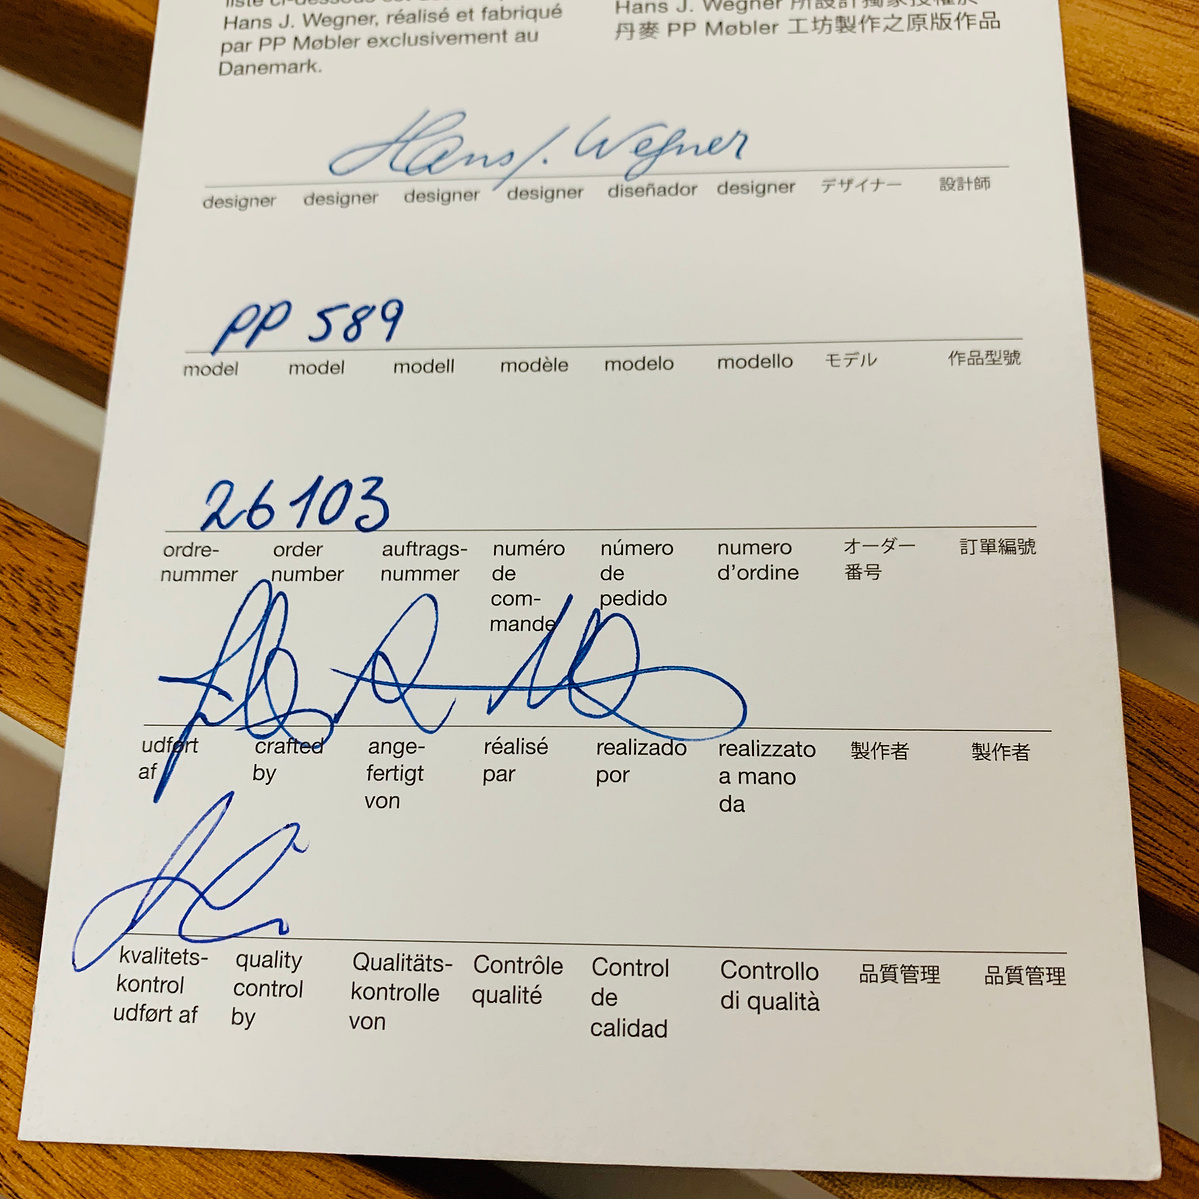 Hans J. Wegner, réalisé et fabriqué
par PP Møbler exclusivement au
Danemark.
Hans J. Wegner 所設計獨家授權於
丹麥 PP Møbler 工坊製作之原版作品
Hans J. Wegner
designer designer designer designer diseñador designer デザイナー 設計師
PP 589
model model modell modèle modelo modello モデル 作品型號
26103
ordre- order auftrags- numéro número numero オーダー 訂單編號
nummer number nummer de de d'ordine 番号
com- pedido
mande
udført crafted ange- réalisé realizado realizzato 製作者 製作者
af by fertigt par por a mano
von da
kvalitets- quality Qualitäts- Contrôle Control Controllo 品質管理 品質管理
kontrol control kontrolle qualité de di qualità
udført af by von calidad